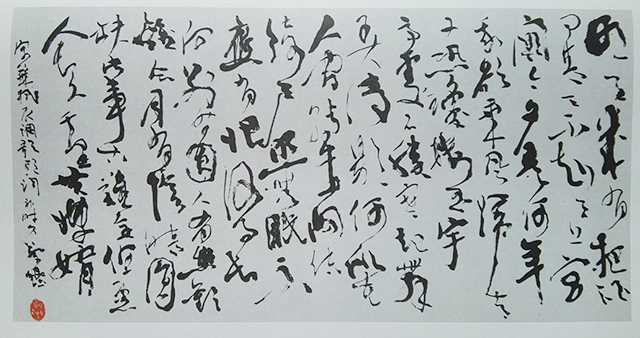 明月幾時有把酒
問青天不知天上宮
闕今夕是何年
我欲乘風歸去
又恐瓊樓玉宇
高處不勝寒起舞
弄清影何似在
人間轉朱閣低
綺戶照無眠不
應有恨何事長
向別時圓人有悲歡
離合月有陰晴圓
缺此事古難全但願
人長久千里共嬋娟
宋蘇軾水調歌頭詞